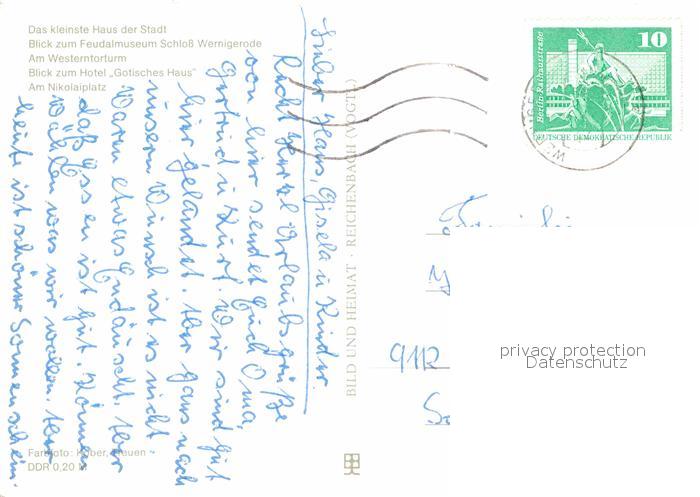 Das kleinste Haus der Stadt
Blick zum Feudalmuseum Schloß Wernigerode
Am Westerntorturm
Blick zum Hotel „Gotisches Haus"
Am Nikolaiplatz
Lieber Hans, Gisela u Kinder.
Recht herzl Urlaubsgrüße
von hier sendet Euch Oma,
Gertrud u Kurt. Wir sind gut
hier gelandet. Aber ganz nach
unsern Wunsch ist es nicht.
Waren etwas Endäuscht. Aber
daß Essen ist gut. Können
Wählen was wir wollen. Aber
heute ist schöner Sonnenschein.
Farbfoto: Huber, Treuen
DDR 0,20 M
BILD UND HEIMAT · REICHENBACH (VOGTL)
10
Berlin-Rathausstraße
DEUTSCHE DEMOKRATISCHE REPUBLIK
9112
privacy protection
Datenschutz